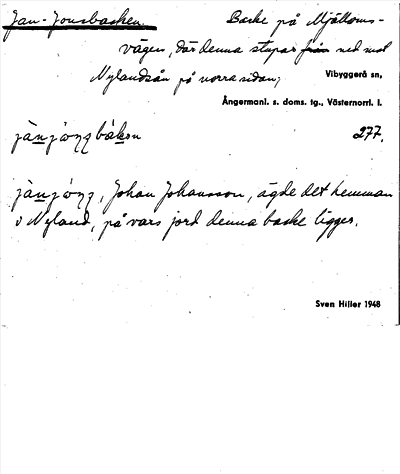 Jan-Jonsbacken Backe på Mjälloms-
vägen, där denna stupar från ned mot
Nylandsån på norra sidan;
Vibyggerå sn,
Ångermanl. s. doms. tg., Västernorrl. l.
277.
, Johan Johansson, ägde det hemman
i Nyland, på vars jord denna backe ligger.
Sven Hiller 1948